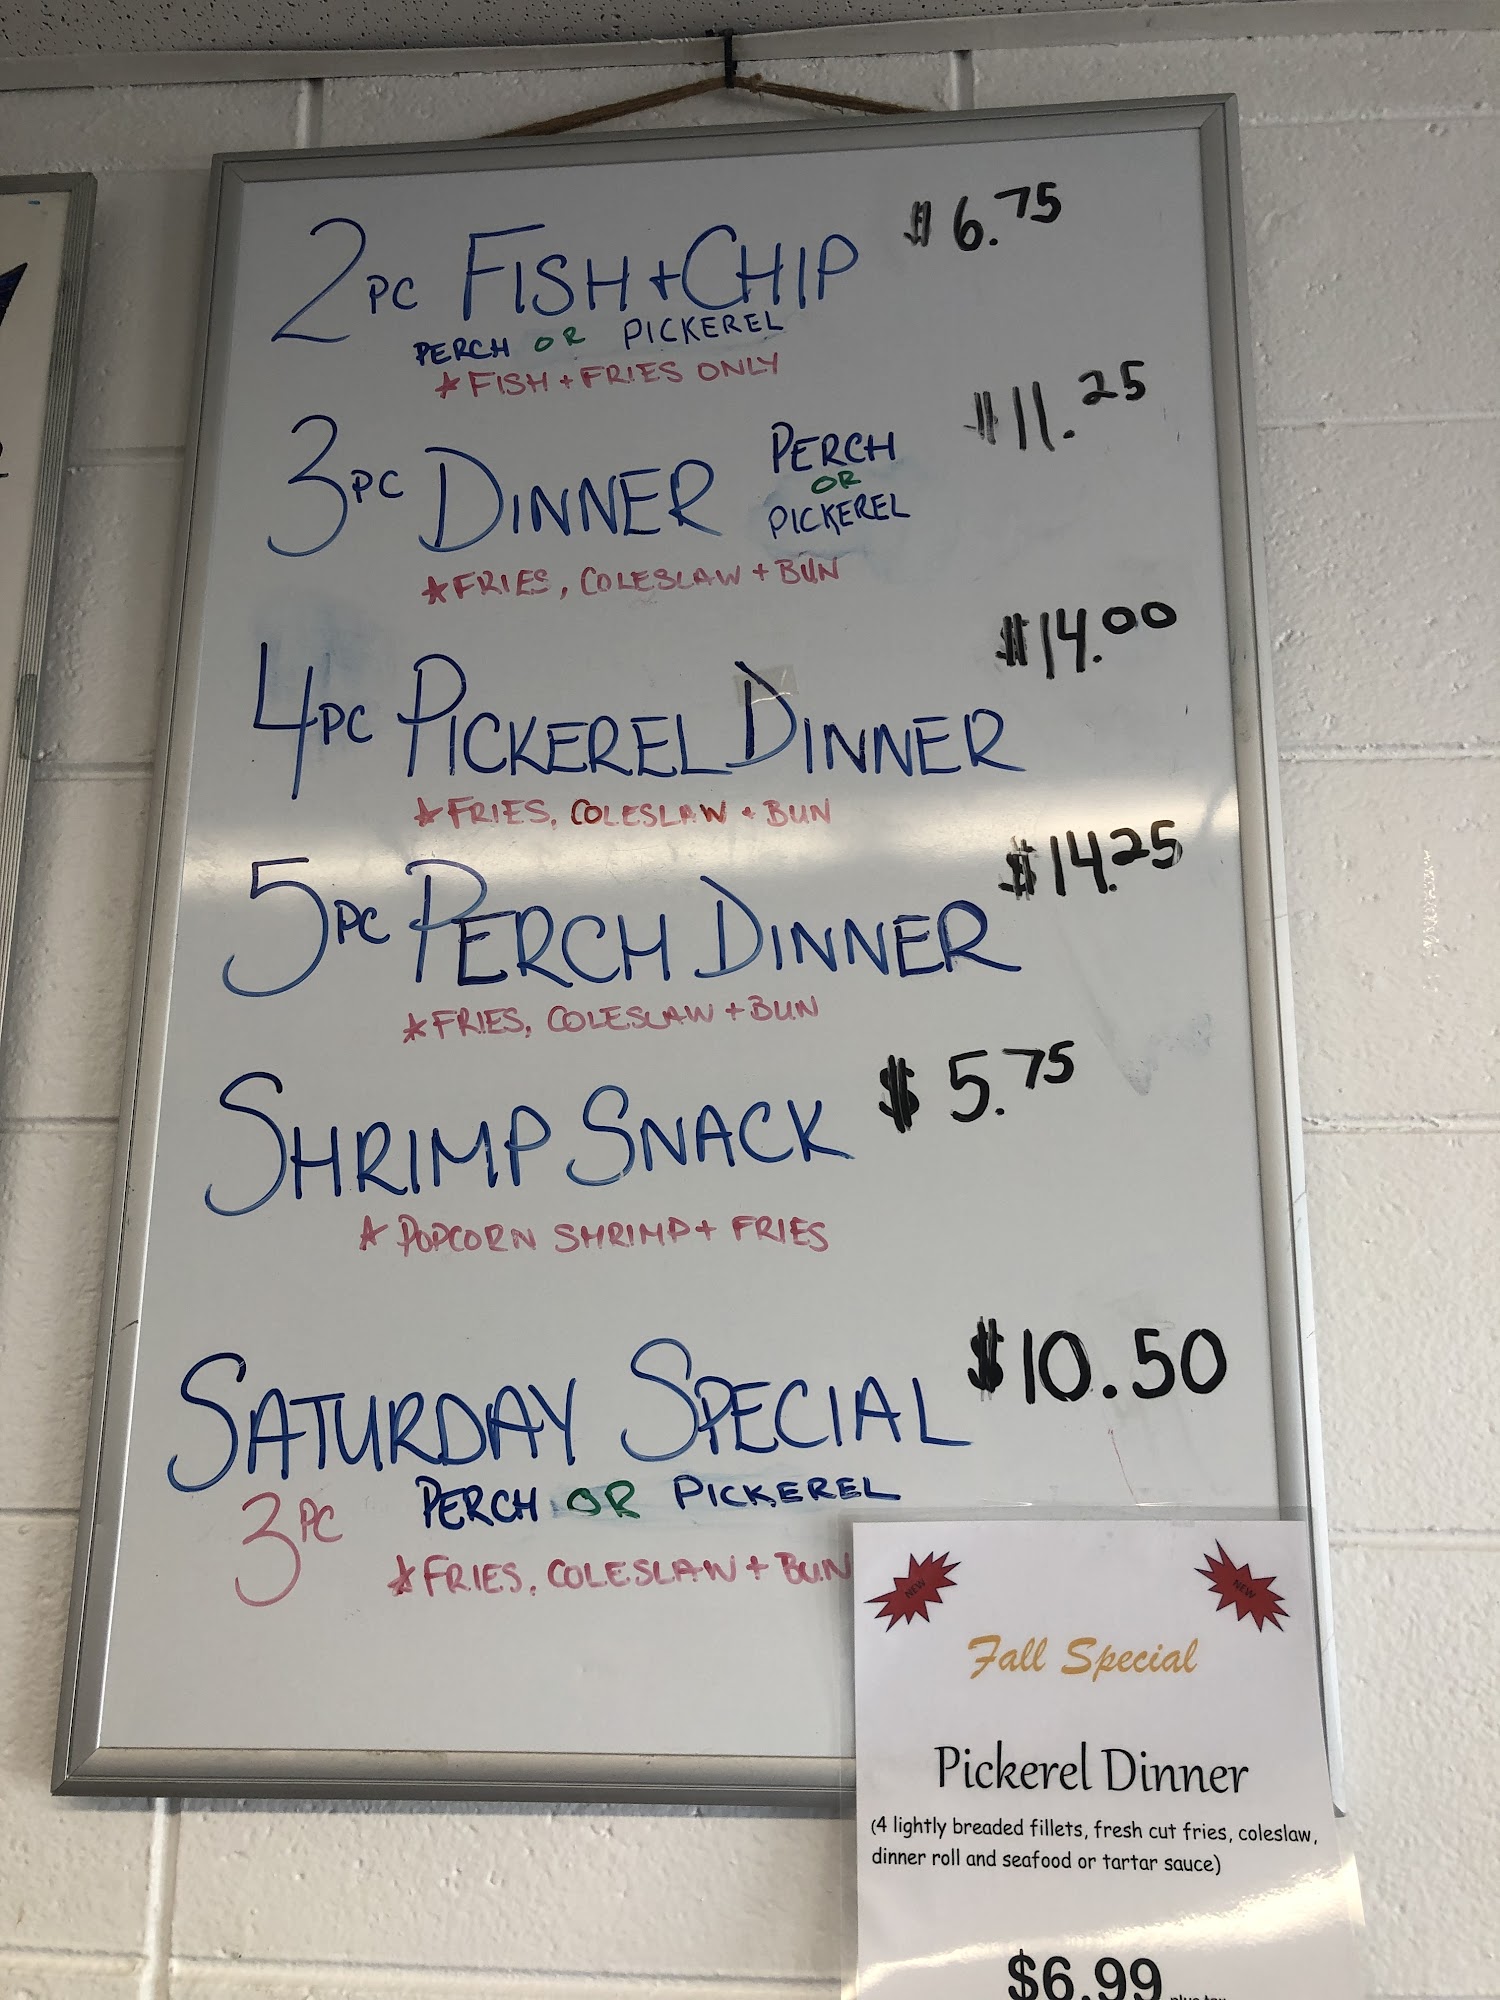 2PC FISH + CHIP $6.75
PERCH OR PICKEREL
*FISH + FRIES ONLY
3PC DINNER PERCH OR PICKEREL $11.25
*FRIES, COLESLAW + BUN
4PC PICKEREL DINNER $14.00
*FRIES, COLESLAW + BUN
5PC PERCH DINNER $14.25
*FRIES, COLESLAW + BUN
SHRIMP SNACK $5.75
*POPCORN SHRIMP + FRIES
SATURDAY SPECIAL $10.50
3PC PERCH OR PICKEREL
*FRIES, COLESLAW + BUN
NEW NEW
Fall Special
Pickerel Dinner
(4 lightly breaded fillets, fresh cut fries, coleslaw,
dinner roll and seafood or tartar sauce)
$6.99